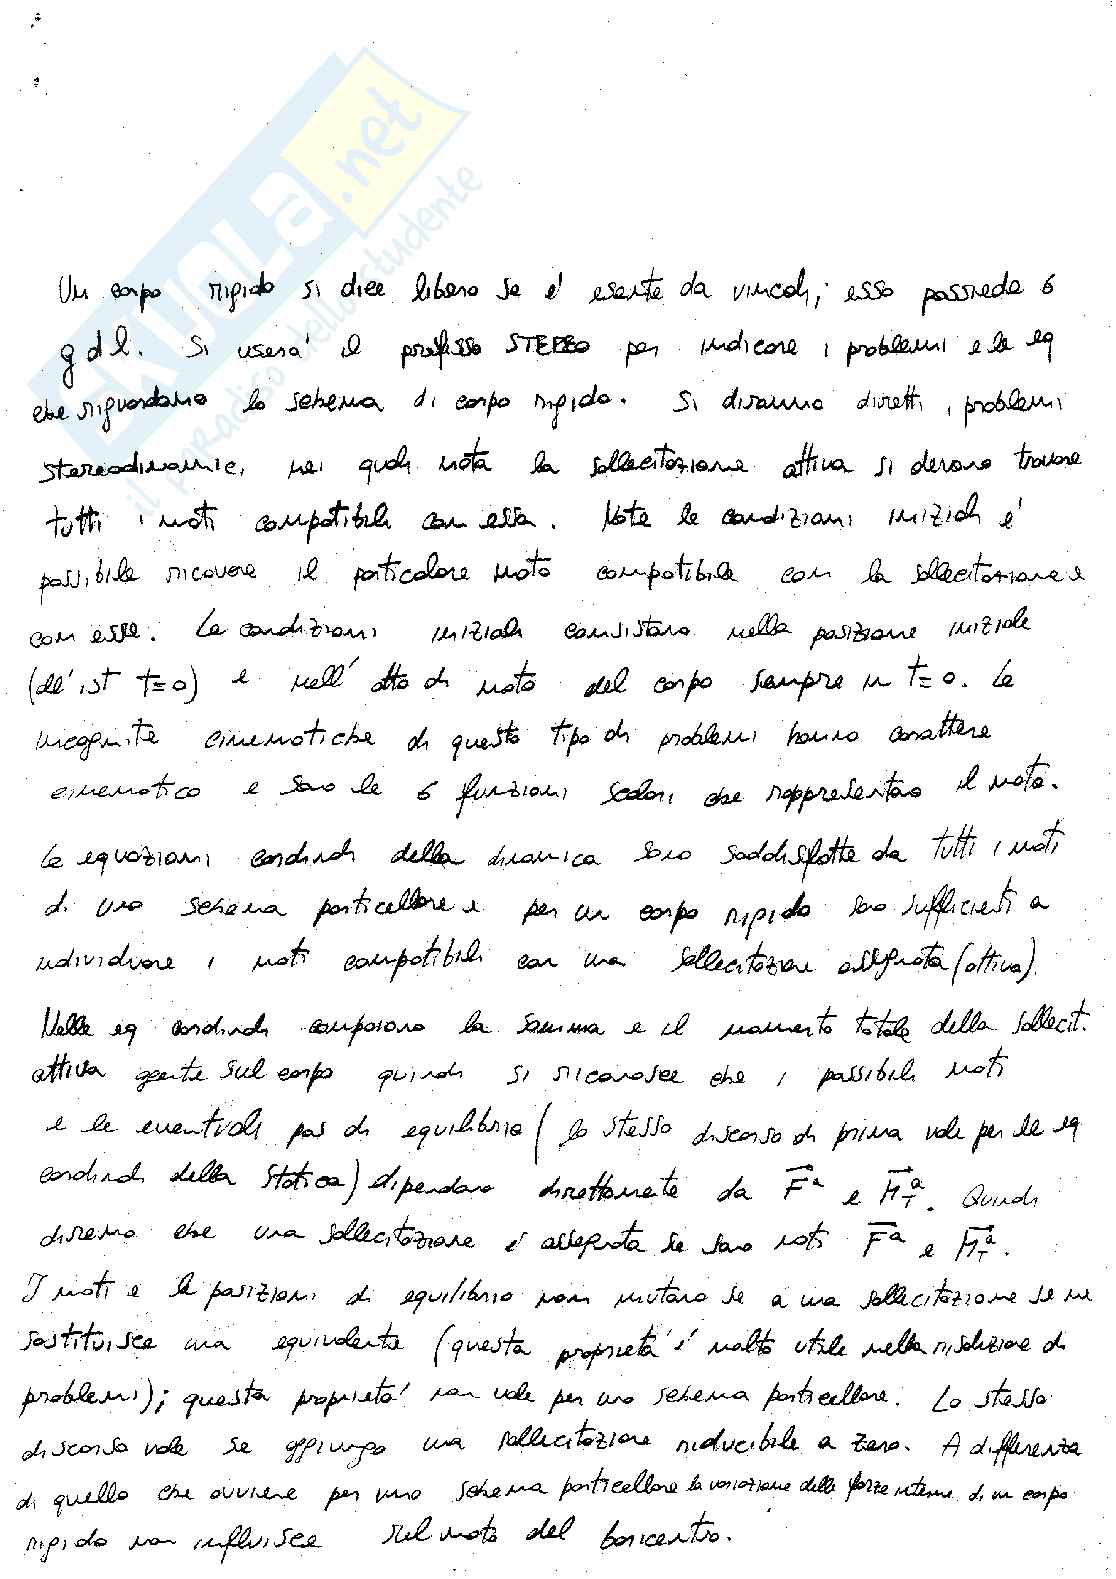 SKUOLA.net
il paradiso dello studente
Un corpo rigido si dice libero se e' esente da vincoli; esso possiede 6
gdl. Si usera' il prefisso STEREO per indicare i problemi e le eq
che riguardano lo schema di corpo rigido. Si diranno diretti i problemi
stereodinamici nei quali nota la sollecitazione attiva si devono trovare
tutti i moti compatibili con essa. Note le condizioni iniziali e'
possibile ricavare il particolare moto compatibile con la sollecitazione e
con esse. Le condizioni iniziali consistono nella posizione iniziale
(all'ist t=0) e nell'atto di moto del corpo sempre in t=0. Le
incognite cinematiche di questo tipo di problemi hanno carattere
cinematico e sono le 6 funzioni scalari che rappresentano il moto.
Le equazioni cardinali della dinamica sono soddisfatte da tutti i moti
di uno schema particellare e per un corpo rigido sono sufficienti a
individuare i moti compatibili con una sollecitazione assegnata (attiva).
Nelle eq cardinali compaiono la somma e il momento totale della sollecit.
attiva agente sul corpo quindi si riconosce che i possibili moti
e le eventuali pos di equilibrio (lo stesso discorso di prima vale per le eq
cardinali della statica) dipendono direttamente da F^a e M_T^a. Quindi
diremo che una sollecitazione e' assegnata se sono noti F^a e M_T^a.
I moti e le posizioni di equilibrio non mutano se a una sollecitazione se ne
sostituisce una equivalente (questa proprieta' e' molto utile nella risoluzione di
problemi); questa proprieta' non vale per uno schema particellare. Lo stesso
discorso vale se aggiungo una sollecitazione riducibile a zero. A differenza
di quello che avviene per uno schema particellare la variazione delle forze interne di un corpo
rigido non influisce sul moto del baricentro.